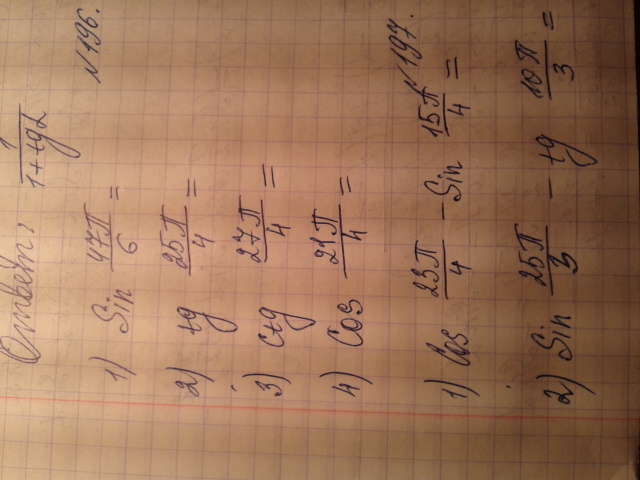 Ответ: 1/(1+tgα)
№196.
1) Sin 47π/6 =
2) tg 25π/4 =
3) ctg 27π/4 =
4) Cos 21π/4 =
№197.
1) Cos 23π/4 - Sin 15π/4 =
2) Sin 25π/3 - tg 10π/3 =